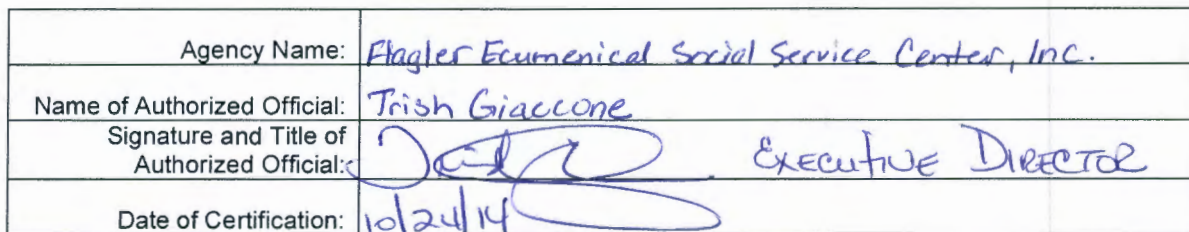 Agency Name: Flagler Ecumenical Social Service Center, Inc.
Name of Authorized Official: Trish Giaccone
Signature and Title of
Authorized Official: EXECUTIVE DIRECTOR
Date of Certification: 10/24/14